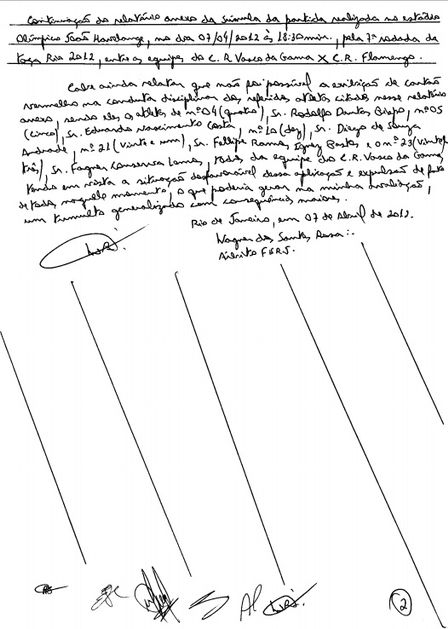 Continuação do relatório anexo da súmula da partida realizada no estádio
Olímpico João Havelange, no dia 07/04/2012 às 18:30min., pela 7ª rodada da
taça Rio 2012, entre as equipes do C.R. Vasco da Gama X C.R. Flamengo.
Cabe ainda relatar que não foi possível a exibição de cartão
vermelho na conduta disciplinar dos referidos atletas citados nesse relatório
anexo, sendo eles os atletas de nº 04 (quatro), Sr. Rodolfo Dantas Bispo, nº 05
(cinco), Sr. Eduardo Nascimento Costa, nº 10 (dez), Sr. Diego de Souza
Andrade, nº 21 (vinte e um), Sr. Fellipe Ramos Ignez Bastos e o nº 23 (vinte e
três), Sr. Fagner Conserva Lemos, todos da equipe do C.R. Vasco da Gama,
tendo em vista a situação desfavorável dessa aplicação e expulsão de fato
de todos naquele momento, o que poderia gerar na minha avaliação,
um tumulto generalizado com consequências maiores.
Rio de Janeiro, em 07 de Abril de 2012.
Wagner dos Santos Rosa
Árbitro FERJ.
2